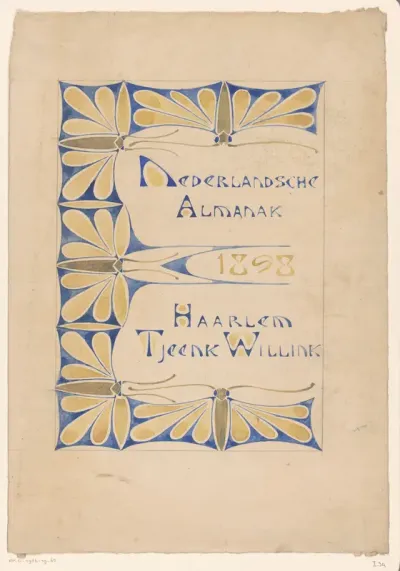 Nederlandsche
Almanak
1898
Haarlem
Tjeenk Willink